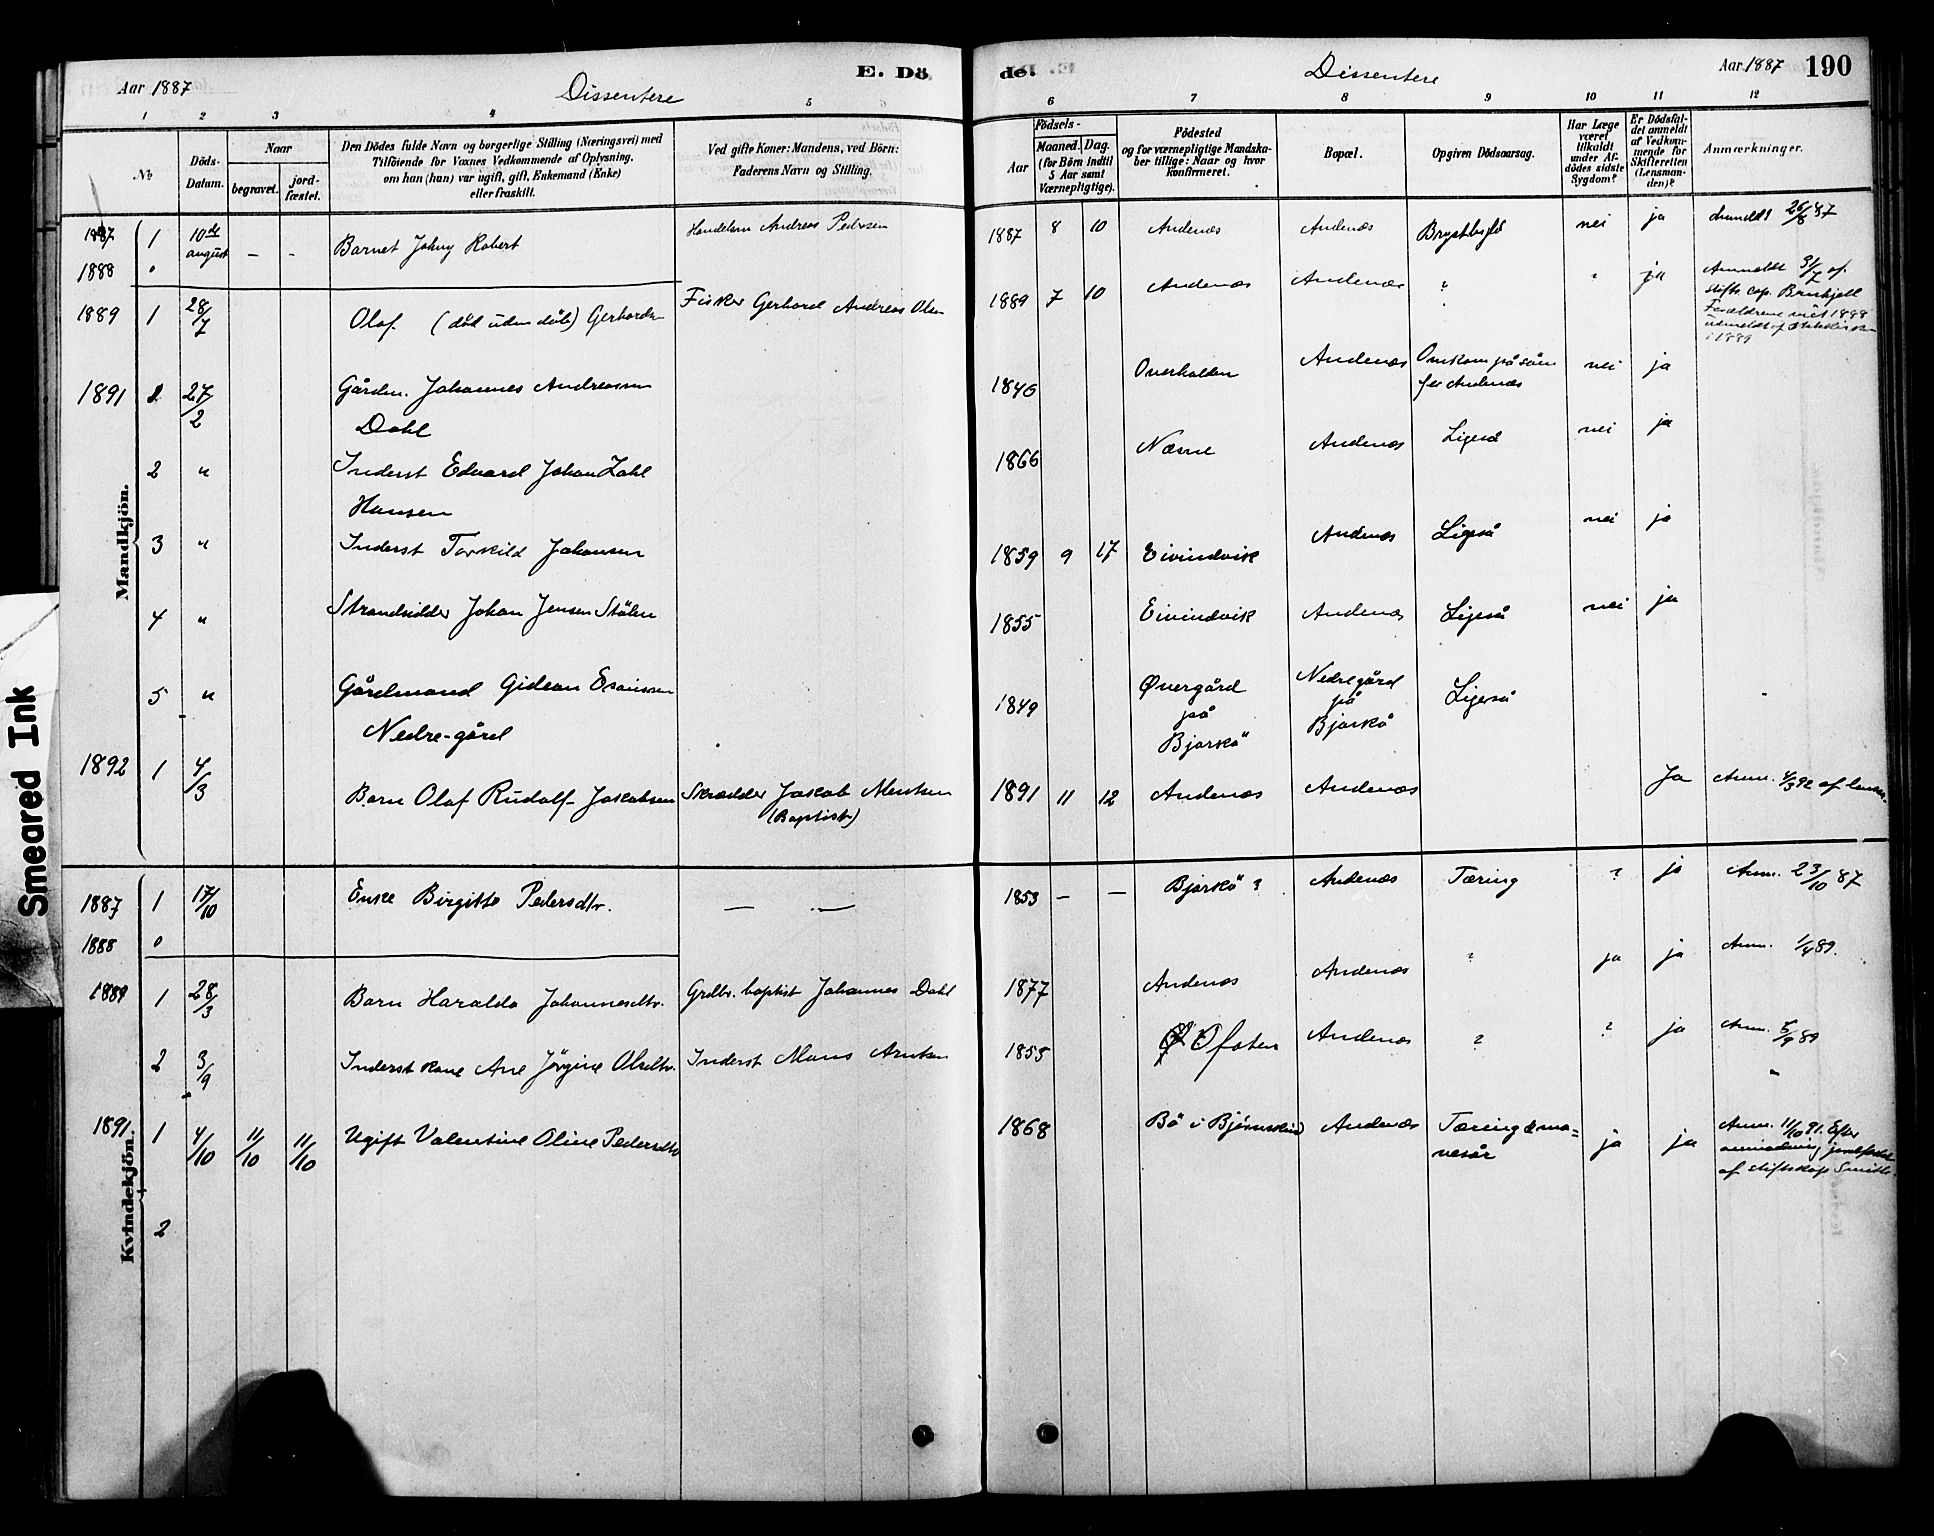 Aar 1887
Dissentere
E. Dö
de.
Dissentere
Aar 1887
190
1 2 3 4 5 6 7 8 9 10 11 12
No
Döds-Datum.
Naar
begravet.
jord-fæstet.
Den Dödes fulde Navn og borgerlige Stilling (Næringsvei) med
Tilföiende for Voxnes Vedkommende af Oplysning,
om han (hun) var ugift, gift, Enkemand (Enke)
eller fraskilt.
Ved gifte Koner: Mandens, ved Börn:
Faderens Navn og Stilling.
Födsels-
Aar
Maaned. Dag.
(for Börn indtil
5 Aar samt
Værnepligtige).
Födested
og for værnepligtige Mandska-
ber tillige: Naar og hvor
konfirmeret.
Bopæl.
Opgiven Dödsaarsag.
Har Læge
været
tilkaldt
under Af-
dödes sidste
Sygdom?
Er Dödsfal-
det anmeldt
af Vedkom-
mende for
Skifteretten
(Lensman-
den)?
Anmærkninger.
Mandkjön.
1887 1 10de august – - Barnet Johny Robert Handelsm Andreas Pedersen 1887 8 10 Andenæs Andenæs nei ja Anmeldt 26/8 87
1888 0
1889 1 28/7 Olaf (död uden dåb) Gerhards Fisker Gerhard Andreas Olsen 1889 7 10 Andenæs Andenæs ? ? ja Anmeldt 31/7 af
stifts cap. Brinkjell
Forældrene 1888
udmeldt af Statskirken
i 1889
1891 1 27/2 Gårdm. Johannes Andreassen
Dahl 1846 Overhalden Andenæs Omkom på söen
for Andenæs nei ja
2 " Inderst Edvard Johan Zahl
Hansen 1866 Næsne Andenæs Ligeså nei ja
3 " Inderst Torkild Johansen 1859 9 17 Eivindvik Andenæs Ligeså nei ja
4 " Strandsidder Johan Jensen Stölen 1855 Eivindvik Andenæs Ligeså nei ja
5 " Gårdmand Gideon Esaiassen
Nedre-gård 1849 Övergård
på
Bjarkö Nedregård
på
Bjarkö Ligeså
1892 1 4/3 Barn Olaf Rudolf Jakobsen Skrædder Jakob
(Baptist) 1891 11 12 Andenæs Andenæs Ja Anm. 4/3 92 af lensm.
Kvindekjön.
1887 1 17/10 Enke Birgitte Pedersdtr. — — 1853 – – Bjarkö ? Andenæs Tæring ? ja Anm. 23/10 87
1888 0
1889 1 28/3 Barn Haralda Johannesdtr. Grdbr. baptist Johannes Dahl 1877 Andenæs Andenæs ? ja ja Anm. 1/4 89.
2 3/9 Inderst kone Ane Jörgine Olsdtr. Inderst Mons Arntsen 1855 Ofoten Andenæs ? ? ja Anm. 5/9 89
1891. 1 4/10 11/10 11/10 Ugift Valentine Oline Pedersdtr 1868 Bö i Björnskind Andenæs Tæring & ma=
vesår ja ja Anm. 11/10 91. Efter
anmodning jordfæstet
af stiftskap Smith.
2
Smeared Ink